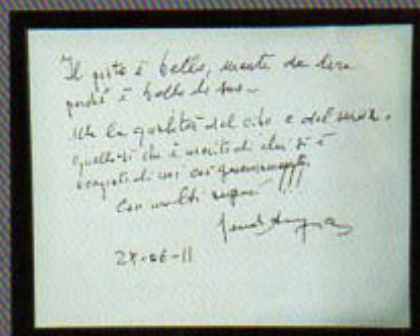 Il posto è bello, niente da dire
perché è bello di suo -
Ma la qualità del cibo e del servizio.
quello sì che è merito di chi si è
occupato di noi così
Con molti auguri !!!